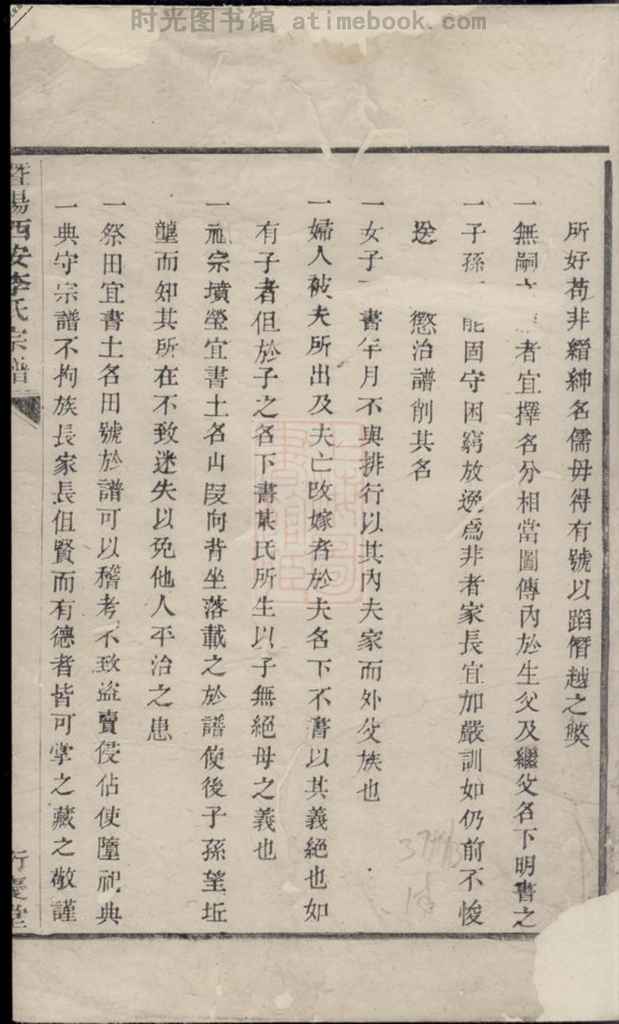 时光图书馆 atimebook.com
所好苟非縉紳名儒毋得有號以蹈僭越之獘
一無嗣 者宜擇名分相當圖傳內於生父及繼父名下明書之
一子孫 能固守困窮放逸爲非者家長宜加嚴訓如仍前不悛
懲治譜削其名
一女子 書年月不與排行以其內夫家而外父族也
一婦人被夫所出及夫亡改嫁者於夫名下不書以其義絕也如
有子者但於子之名下書某氏所生以子無絕母之義也
一祖宗墳塋宜書土名山段向背坐落載之於譜使後子孫望坵
壟而知其所在不致迷失以免他人平治之患
一祭田宜書土名田號於譜可以稽考不致盜賣侵佔使墮祀典
一典守宗譜不拘族長家長但賢而有德者皆可掌之藏之敬謹
暨陽西安李氏宗譜
慶堂